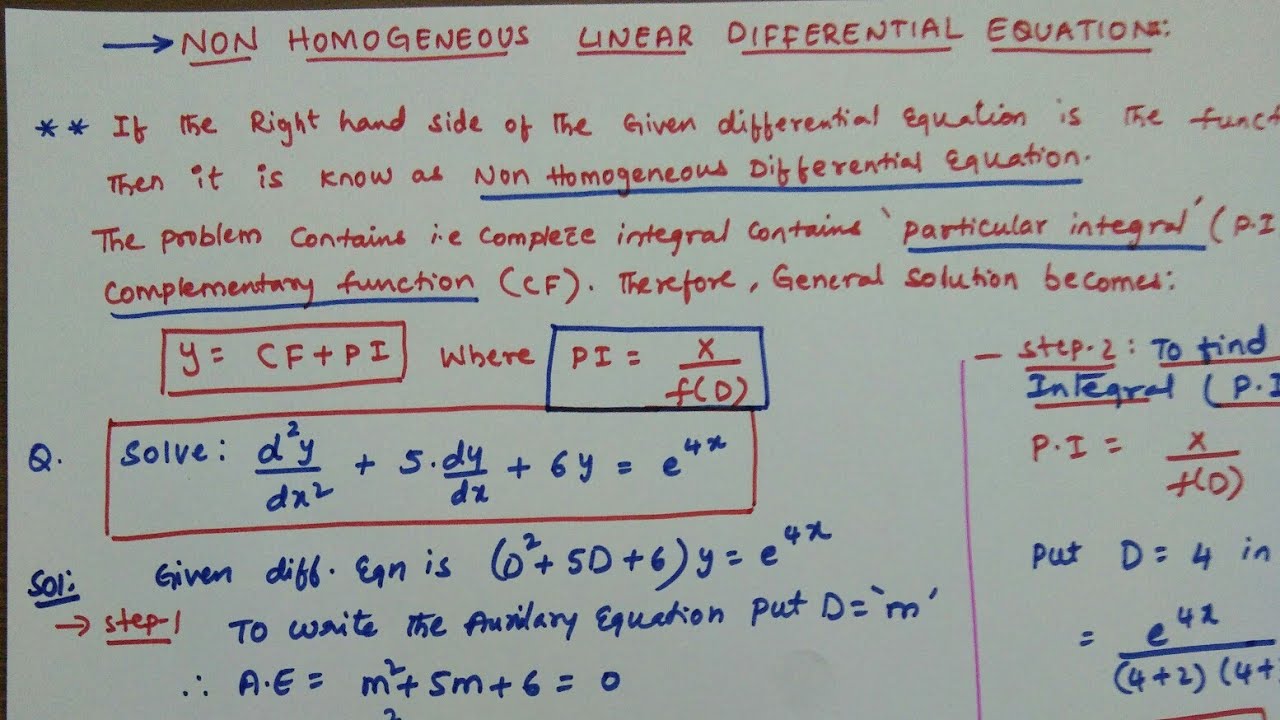 → NON HOMOGENEOUS LINEAR DIFFERENTIAL EQUATIONS:
** If the Right hand side of the Given differential Equation is the funct
Then it is know as Non Homogeneous Differential Equation.
The problem contains i.e complete integral contains 'particular integral' (P.I
complementary function (CF). Therefore, General solution becomes:
y = CF + PI where PI = X/f(D)
Q. Solve: d²y/dx² + 5.dy/dx + 6y = e^4x
Sol: Given diff. Eqn is (D²+5D+6)y = e^4x
→ step-1 To write the Auxilary Equation put D='m'
∴ A.E = m²+5m+6 = 0
– step.2: To find
Integral (P.I
P.I = X/f(D)
put D = 4 in
= e^4x/(4+2)(4+